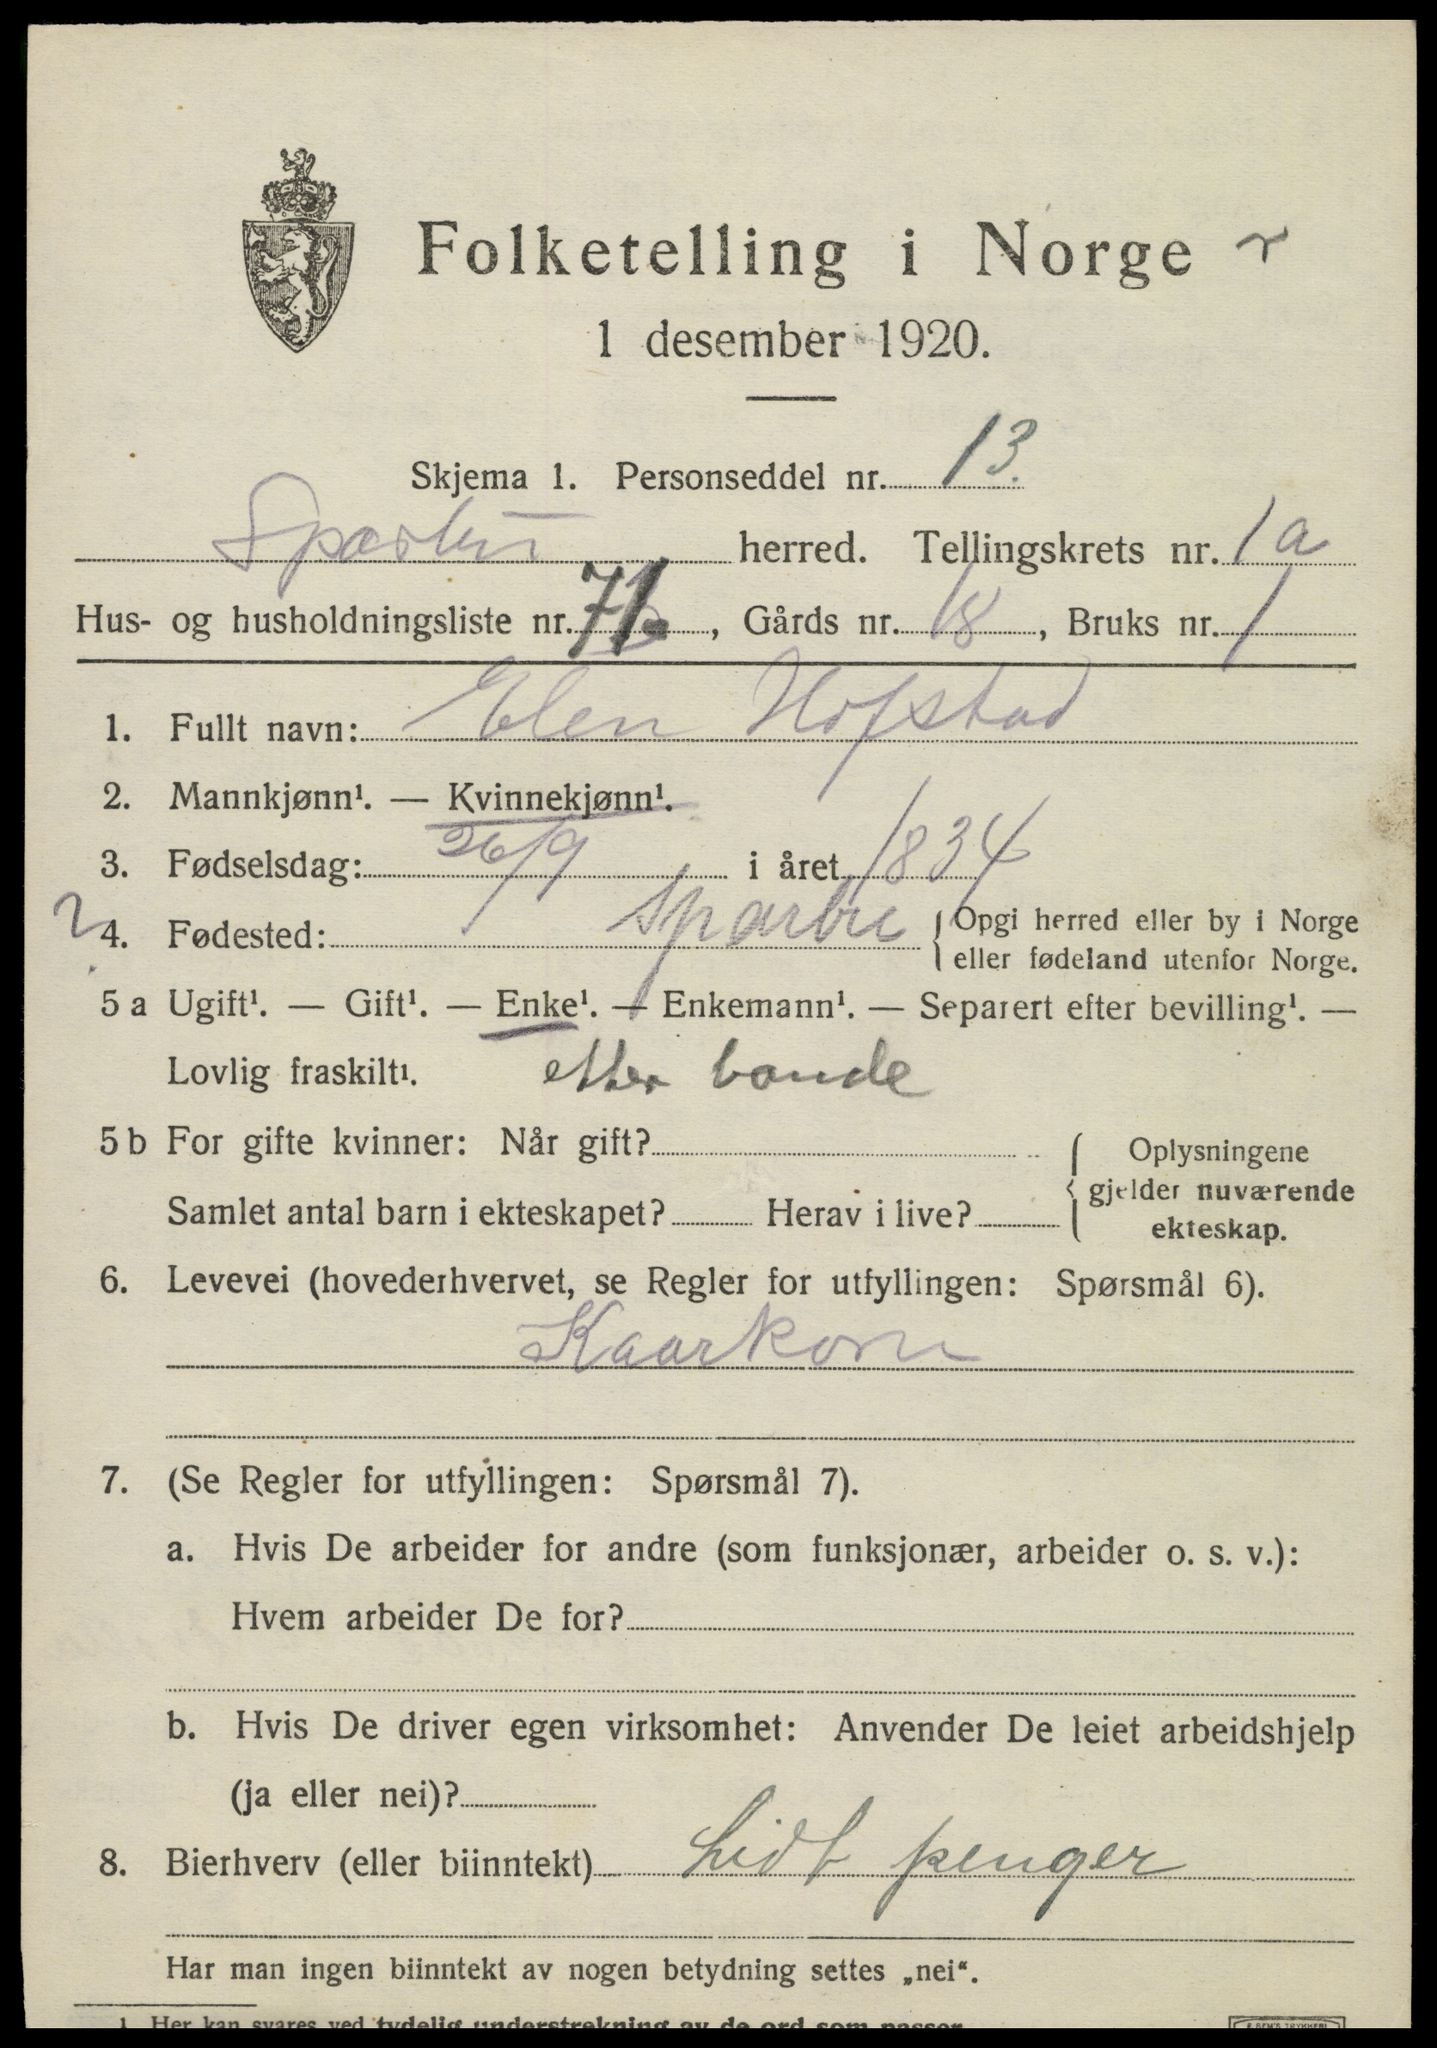 Folketelling i Norge
1 desember 1920.
Skjema 1. Personseddel nr. 13.
Sparbu herred. Tellingskrets nr. 1a
Hus- og husholdningsliste nr. 71, Gårds nr. 18, Bruks nr. 1
1. Fullt navn: Elen Hofstad
2. Mannkjønn¹. — Kvinnekjønn¹.
3. Fødselsdag: 26/9 i året 1834
4. Fødested: Sparbu { Opgi herred eller by i Norge
eller fødeland utenfor Norge.
5 a Ugift¹. — Gift¹. — Enke¹. — Enkemann¹. — Separert efter bevilling¹. —
Lovlig fraskilt¹. etter bonde
5 b For gifte kvinner: Når gift?
Samlet antal barn i ekteskapet? Herav i live?
{ Oplysningene
gjelder nuværende
ekteskap.
6. Levevei (hovederhvervet, se Regler for utfyllingen: Spørsmål 6).
Kaarkone
7. (Se Regler for utfyllingen: Spørsmål 7).
a. Hvis De arbeider for andre (som funksjonær, arbeider o. s. v.):
Hvem arbeider De for?
b. Hvis De driver egen virksomhet: Anvender De leiet arbeidshjelp
(ja eller nei)?
8. Bierhverv (eller biinntekt) Lidt penger
Har man ingen biinntekt av nogen betydning settes „nei“.
1 Her kan svares ved tydelig understrekning av de ord som passer.